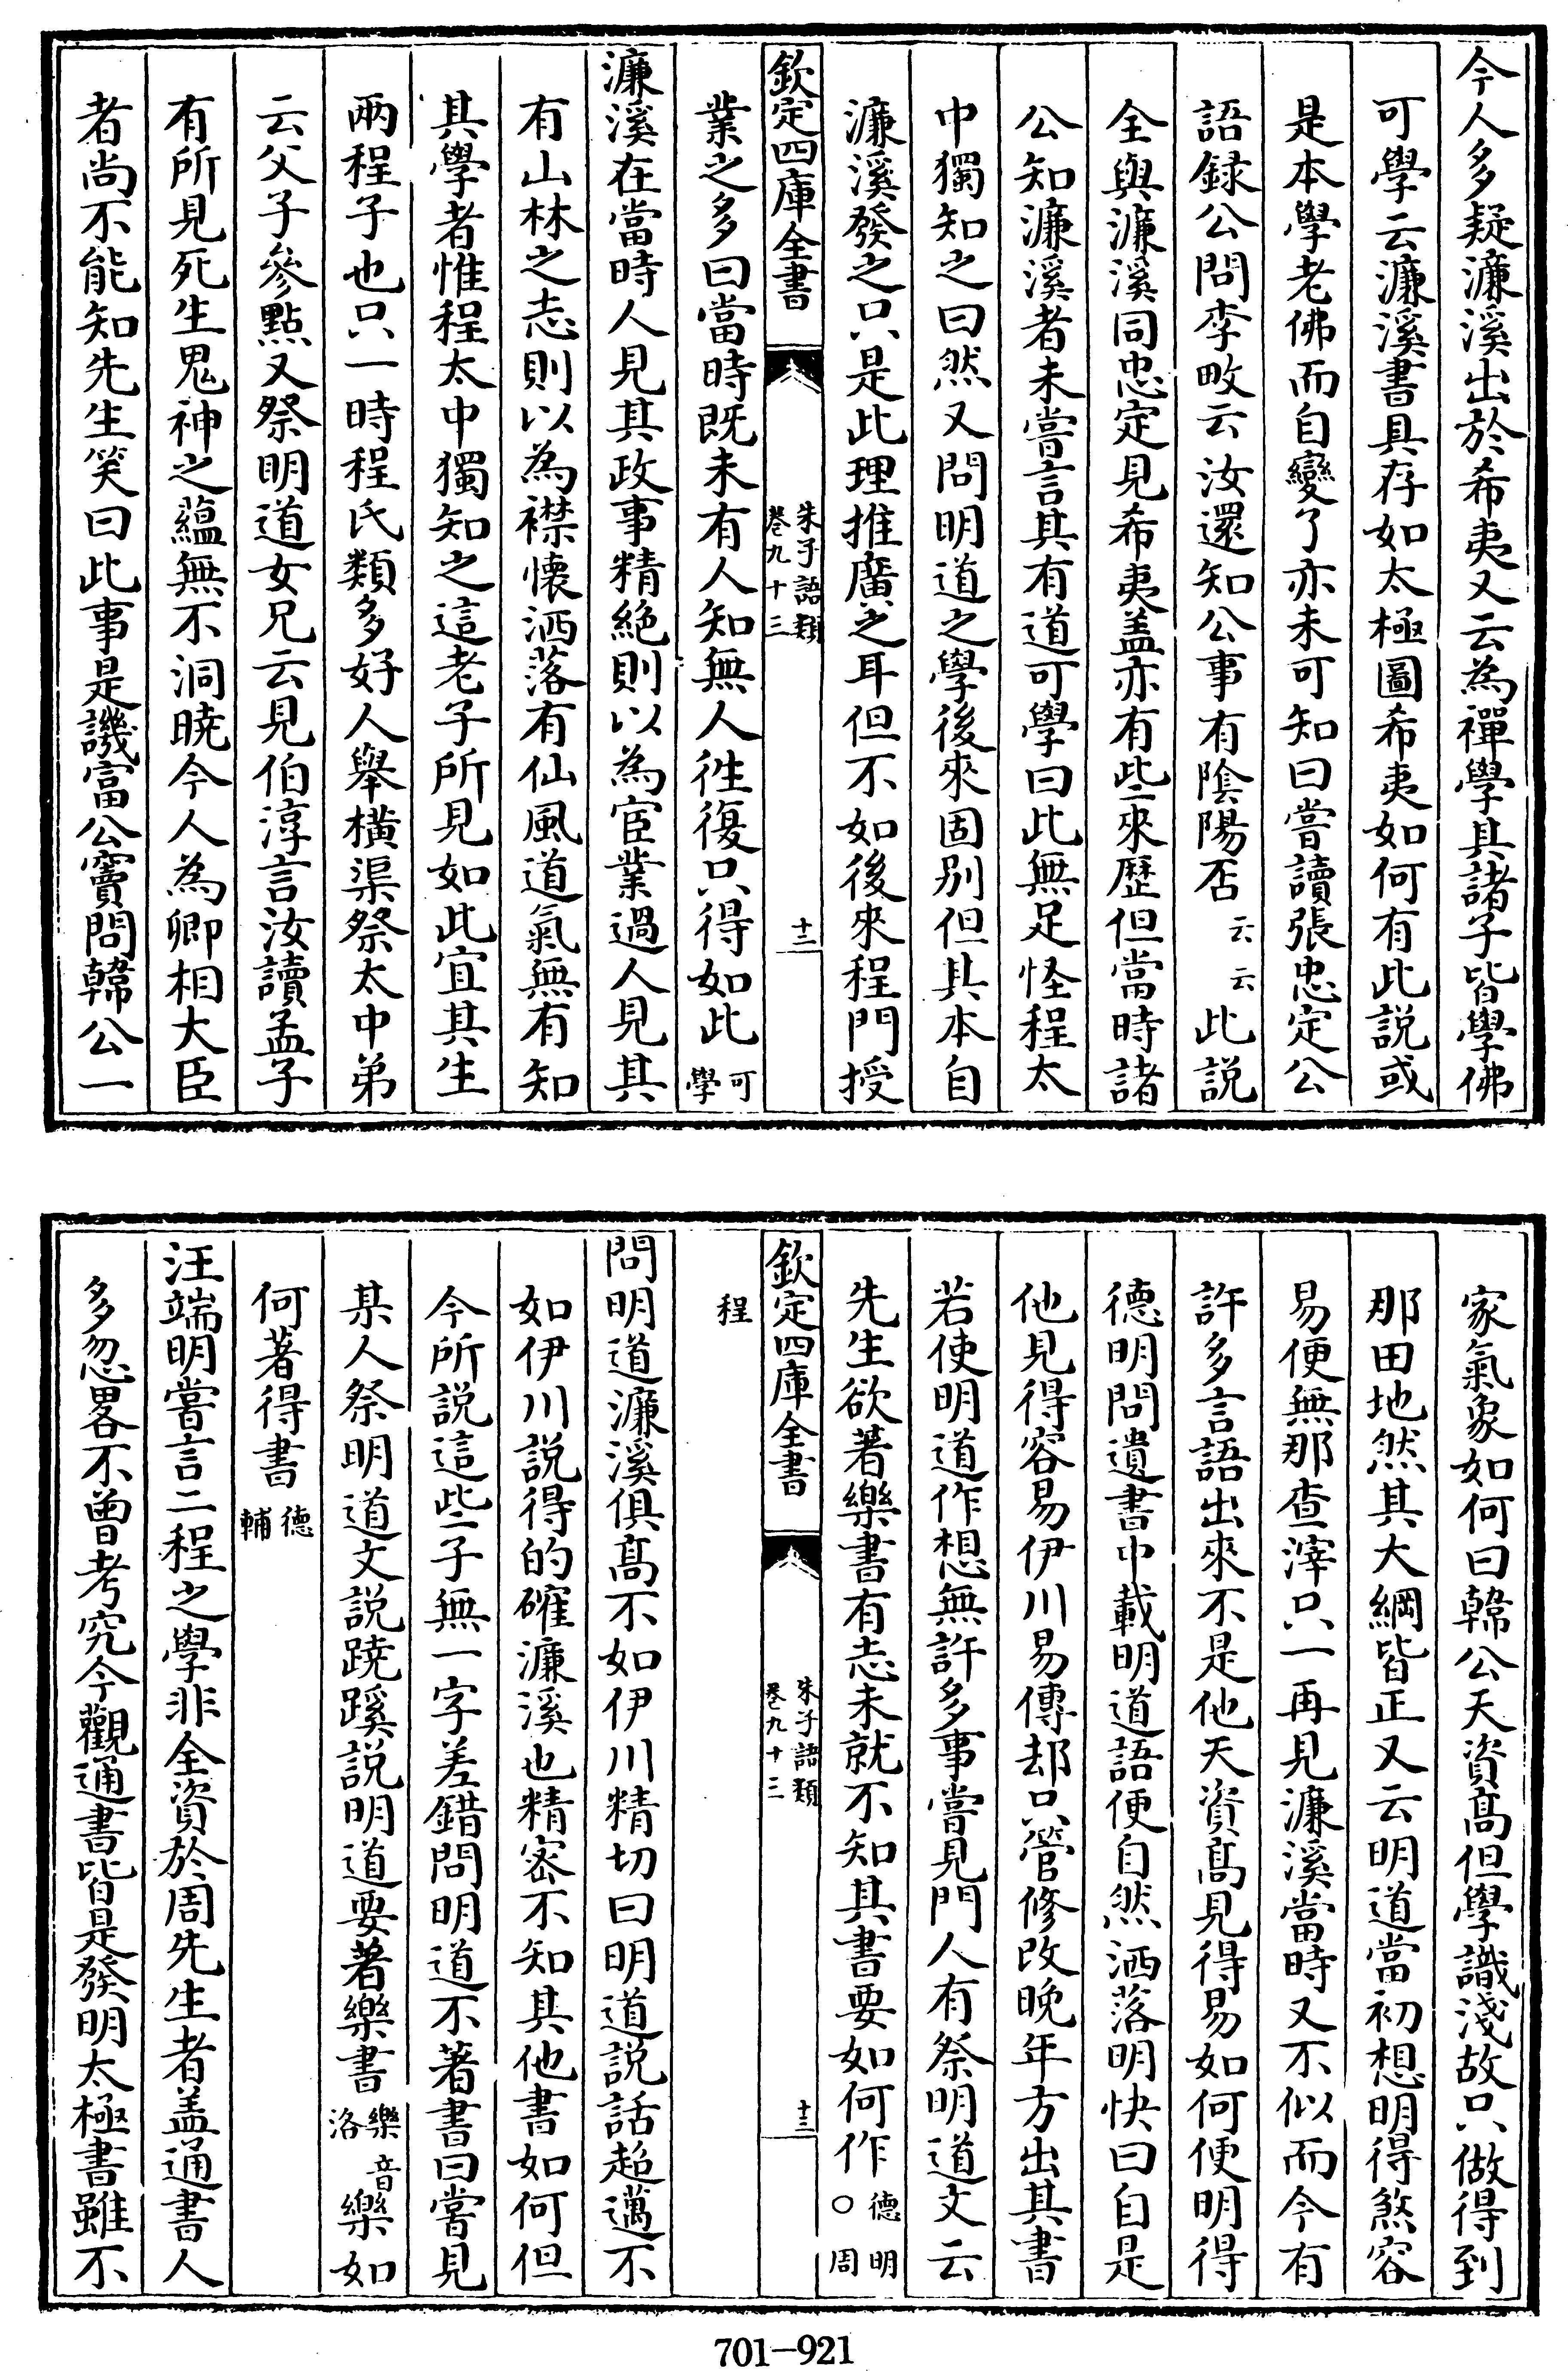 今人多疑濂溪出於希夷又云為禪學其諸子皆學佛
可學云濂溪書具存如太極圖希夷如何有此説或
是本學老佛而自變了亦未可知曰嘗讀張忠定公
語録公問李畋云汝還知公事有陰陽否云云此説
全與濂溪同忠定見希夷盖亦有些來歴但當時諸
公知濂溪者未嘗言其有道可學曰此無足怪程太
中獨知之曰然又問明道之學後來固别但其本自
濂溪發之只是此理推廣之耳但不如後來程門授
欽定四庫全書
朱子語類
卷九十三
十三
業之多曰當時既未有人知無人徃復只得如此可學
濂溪在當時人見其政事精絶則以為宦業過人見其
有山林之志則以為襟懷洒落有仙風道氣無有知
其學者惟程太中獨知之這老子所見如此宜其生
兩程子也只一時程氏類多好人舉横渠祭太中弟
云父子參點又祭明道女兄云見伯淳言汝讀孟子
有所見死生鬼神之蘊無不洞曉今人為卿相大臣
者尚不能知先生笑曰此事是譏富公竇問韓公一
家氣象如何曰韓公天資髙但學識淺故只做得到
那田地然其大綱皆正又云明道當初想明得煞容
易便無那查滓只一再見濂溪當時又不似而今有
許多言語出來不是他天資髙見得易如何便明得
德明問遺書中載明道語便自然洒落明快曰自是
他見得容易伊川易傳却只管修改晚年方出其書
若使明道作想無許多事嘗見門人有祭明道文云
先生欲著樂書有志未就不知其書要如何作德明○周
欽定四庫全書
朱子語類
卷九十三
十三
程
問明道濂溪俱髙不如伊川精切曰明道説話超邁不
如伊川説得的確濂溪也精密不知其他書如何但
今所説這些子無一字差錯問明道不著書曰嘗見
某人祭明道文説蹺蹊説明道要著樂書樂音洛樂如
何著得書德輔
汪端明嘗言二程之學非全資於周先生者盖通書人
多忽畧不曾考究今觀通書皆是發明太極書雖不
701-921